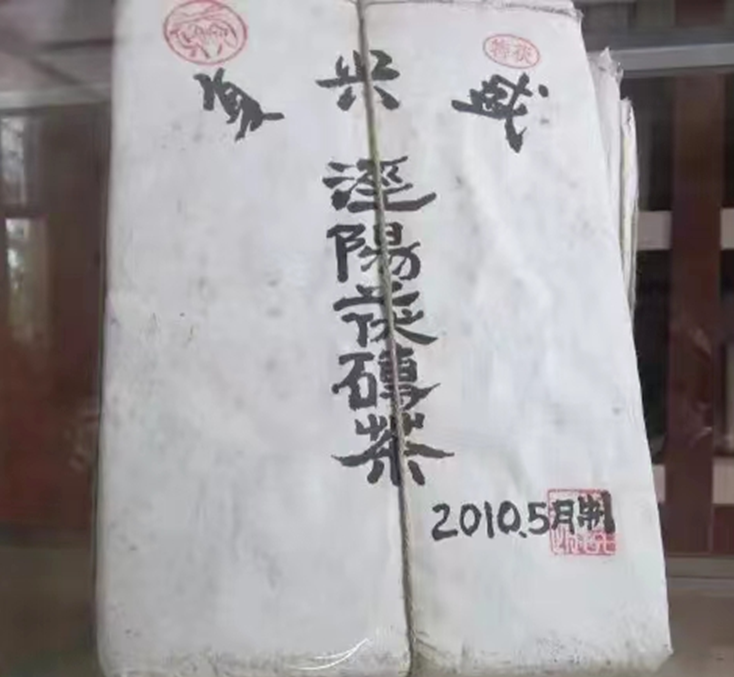 夏兴盛
涇陽茯磚茶
2010.5月制